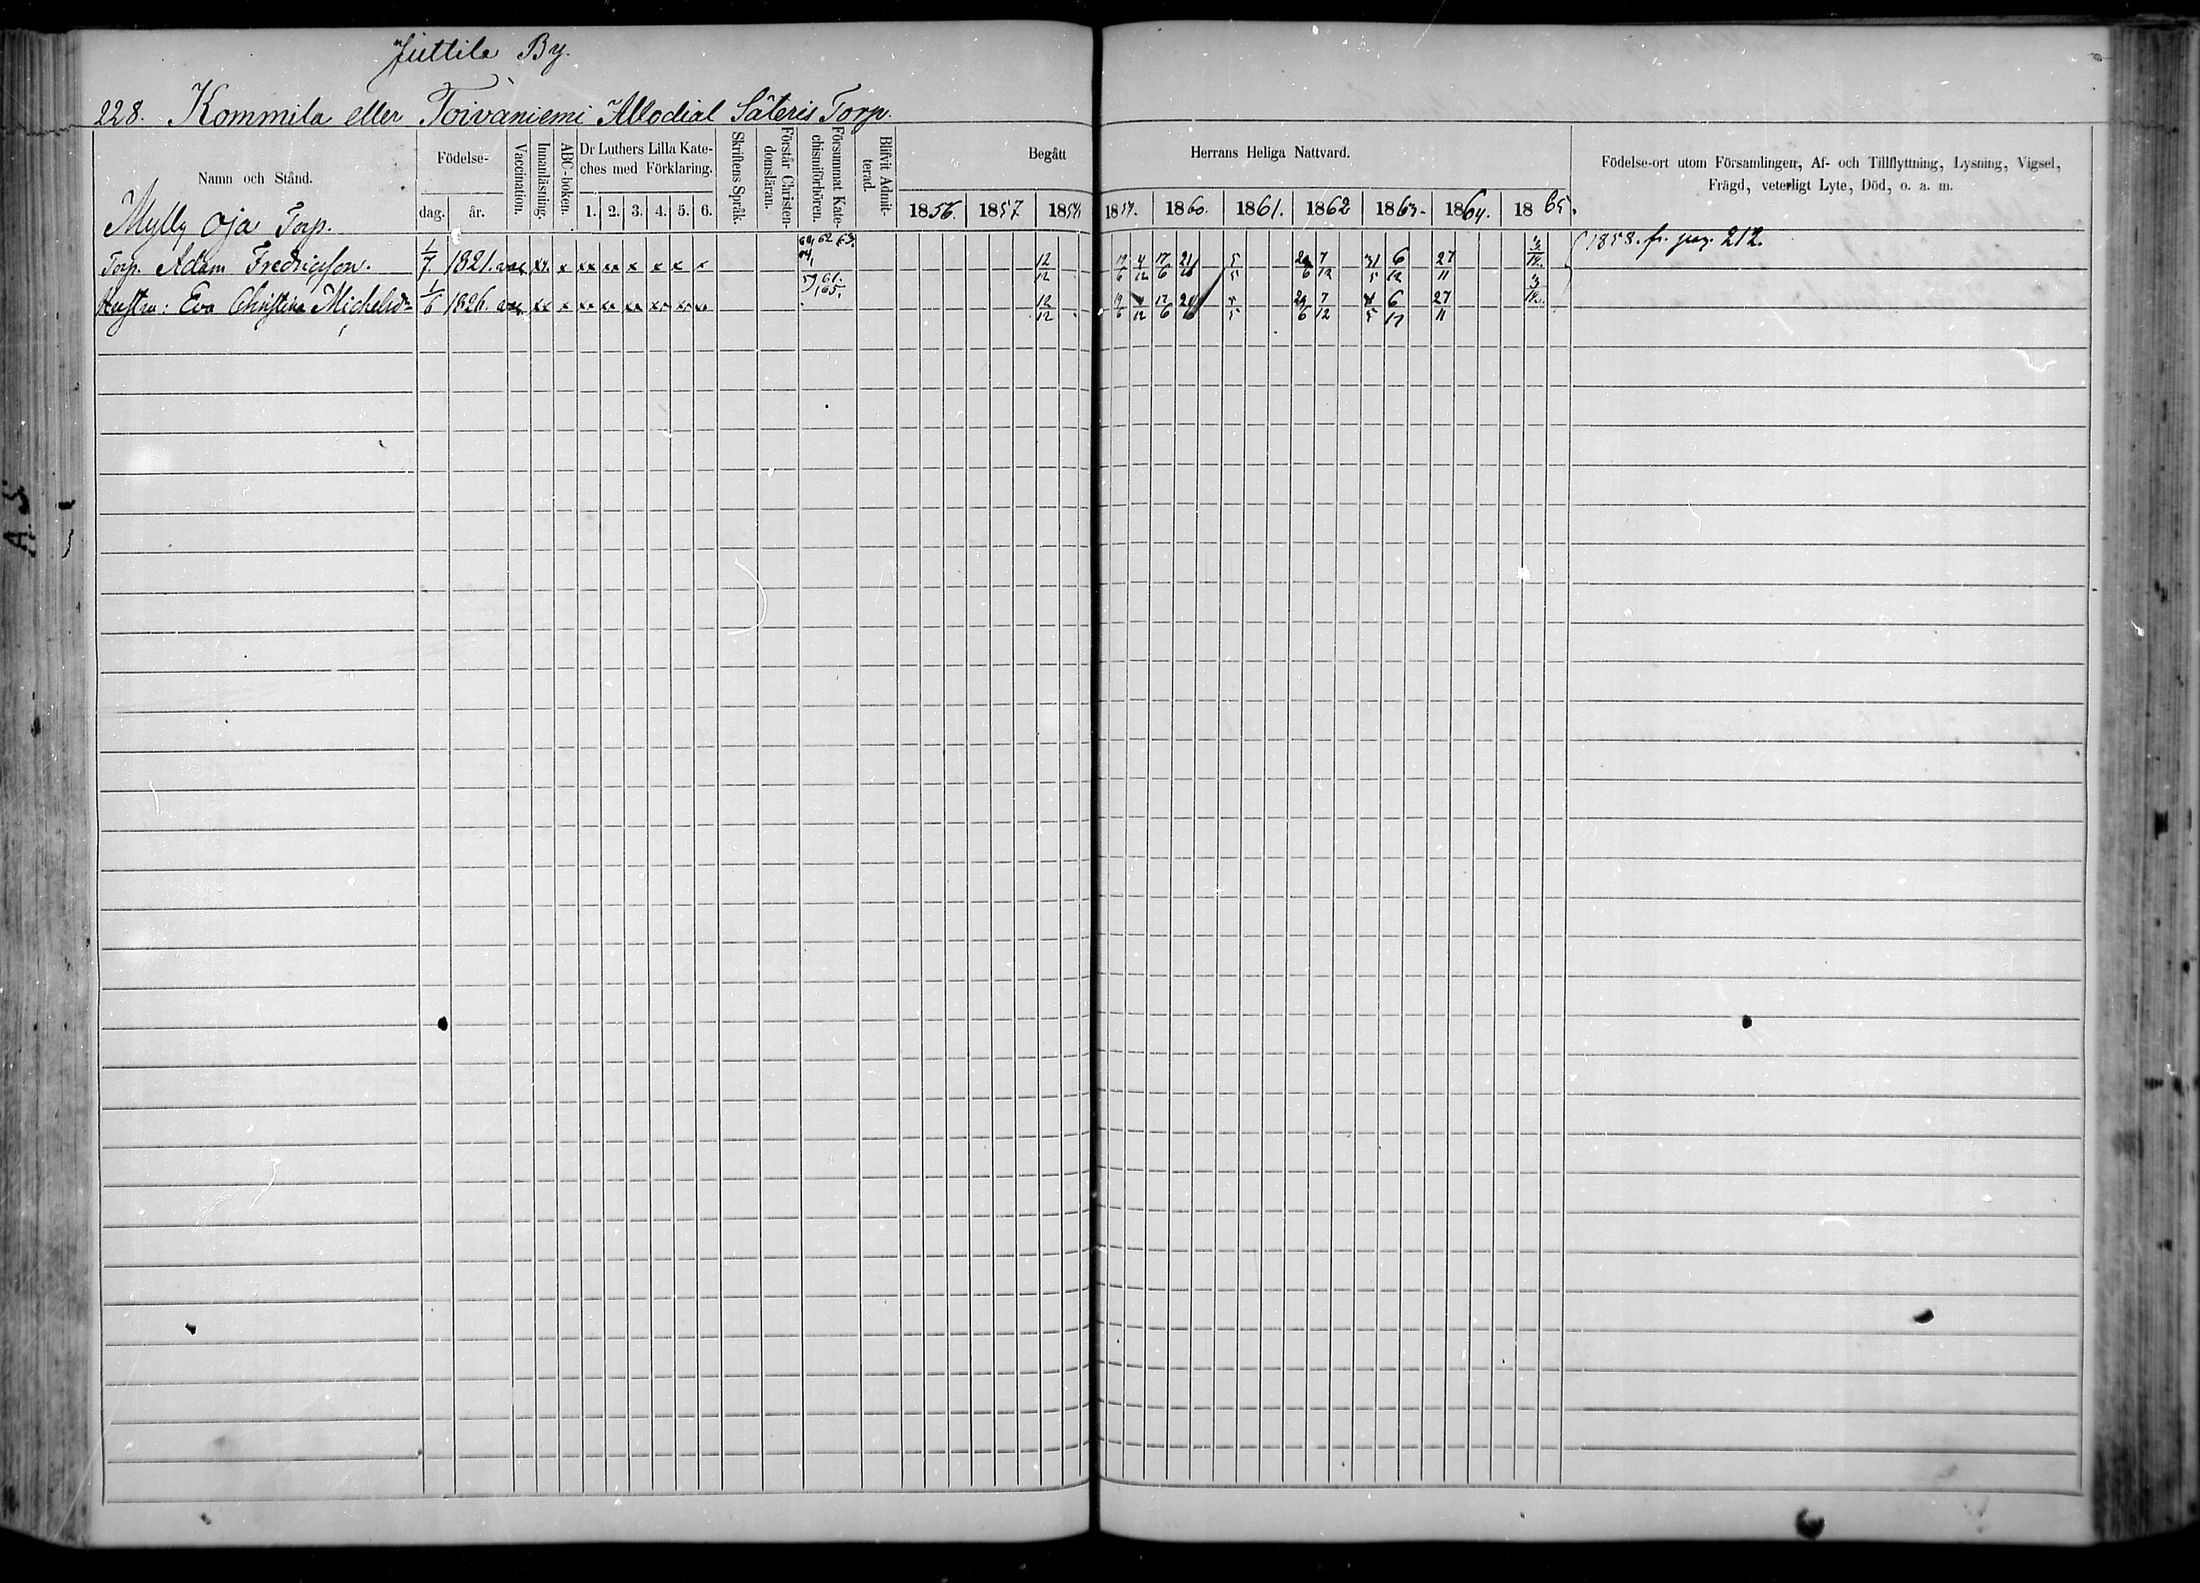 Juttila By.
228. Kommila eller Toivaniemi Allodial Säteris Torp.
Namn och Stånd.
Födelse-
dag. år.
Vaccination.
Innanläsning.
ABC-boken.
Dr Luthers Lilla Kate-
ches med Förklaring.
1. 2. 3. 4. 5. 6.
Skriftens Språk.
Förstår Christen-
domsläran.
Försummat Kate-
chismiförhören.
Blifvit Admit-
terad.
Begått Herrans Heliga Nattvard.
1856. 1857. 1858 1859. 1860. 1861. 1862 1863. 1864. 1865.
Födelse-ort utom Församlingen, Af- och Tillflyttning, Lysning, Vigsel,
Frägd, veterligt Lyte, Död, o. a. m.
Mylly oja Torp.
Torp. Adam Fredricsson. 1/7 1821. vac xx x xx xx x x x x 62 63. 12/12 19/6 4/12 17/6 21/10 5/5 29/6 7/12 31/5 6/12 27/11 1858. fr. pag. 212.
Hustru: Eva Christina Michelsdr 1/6 1826. vac xx x xx xx xx xx xx 59, 61. 65. 12/12 19/6 12/6 5 29/6 7/12 5 6 27/11